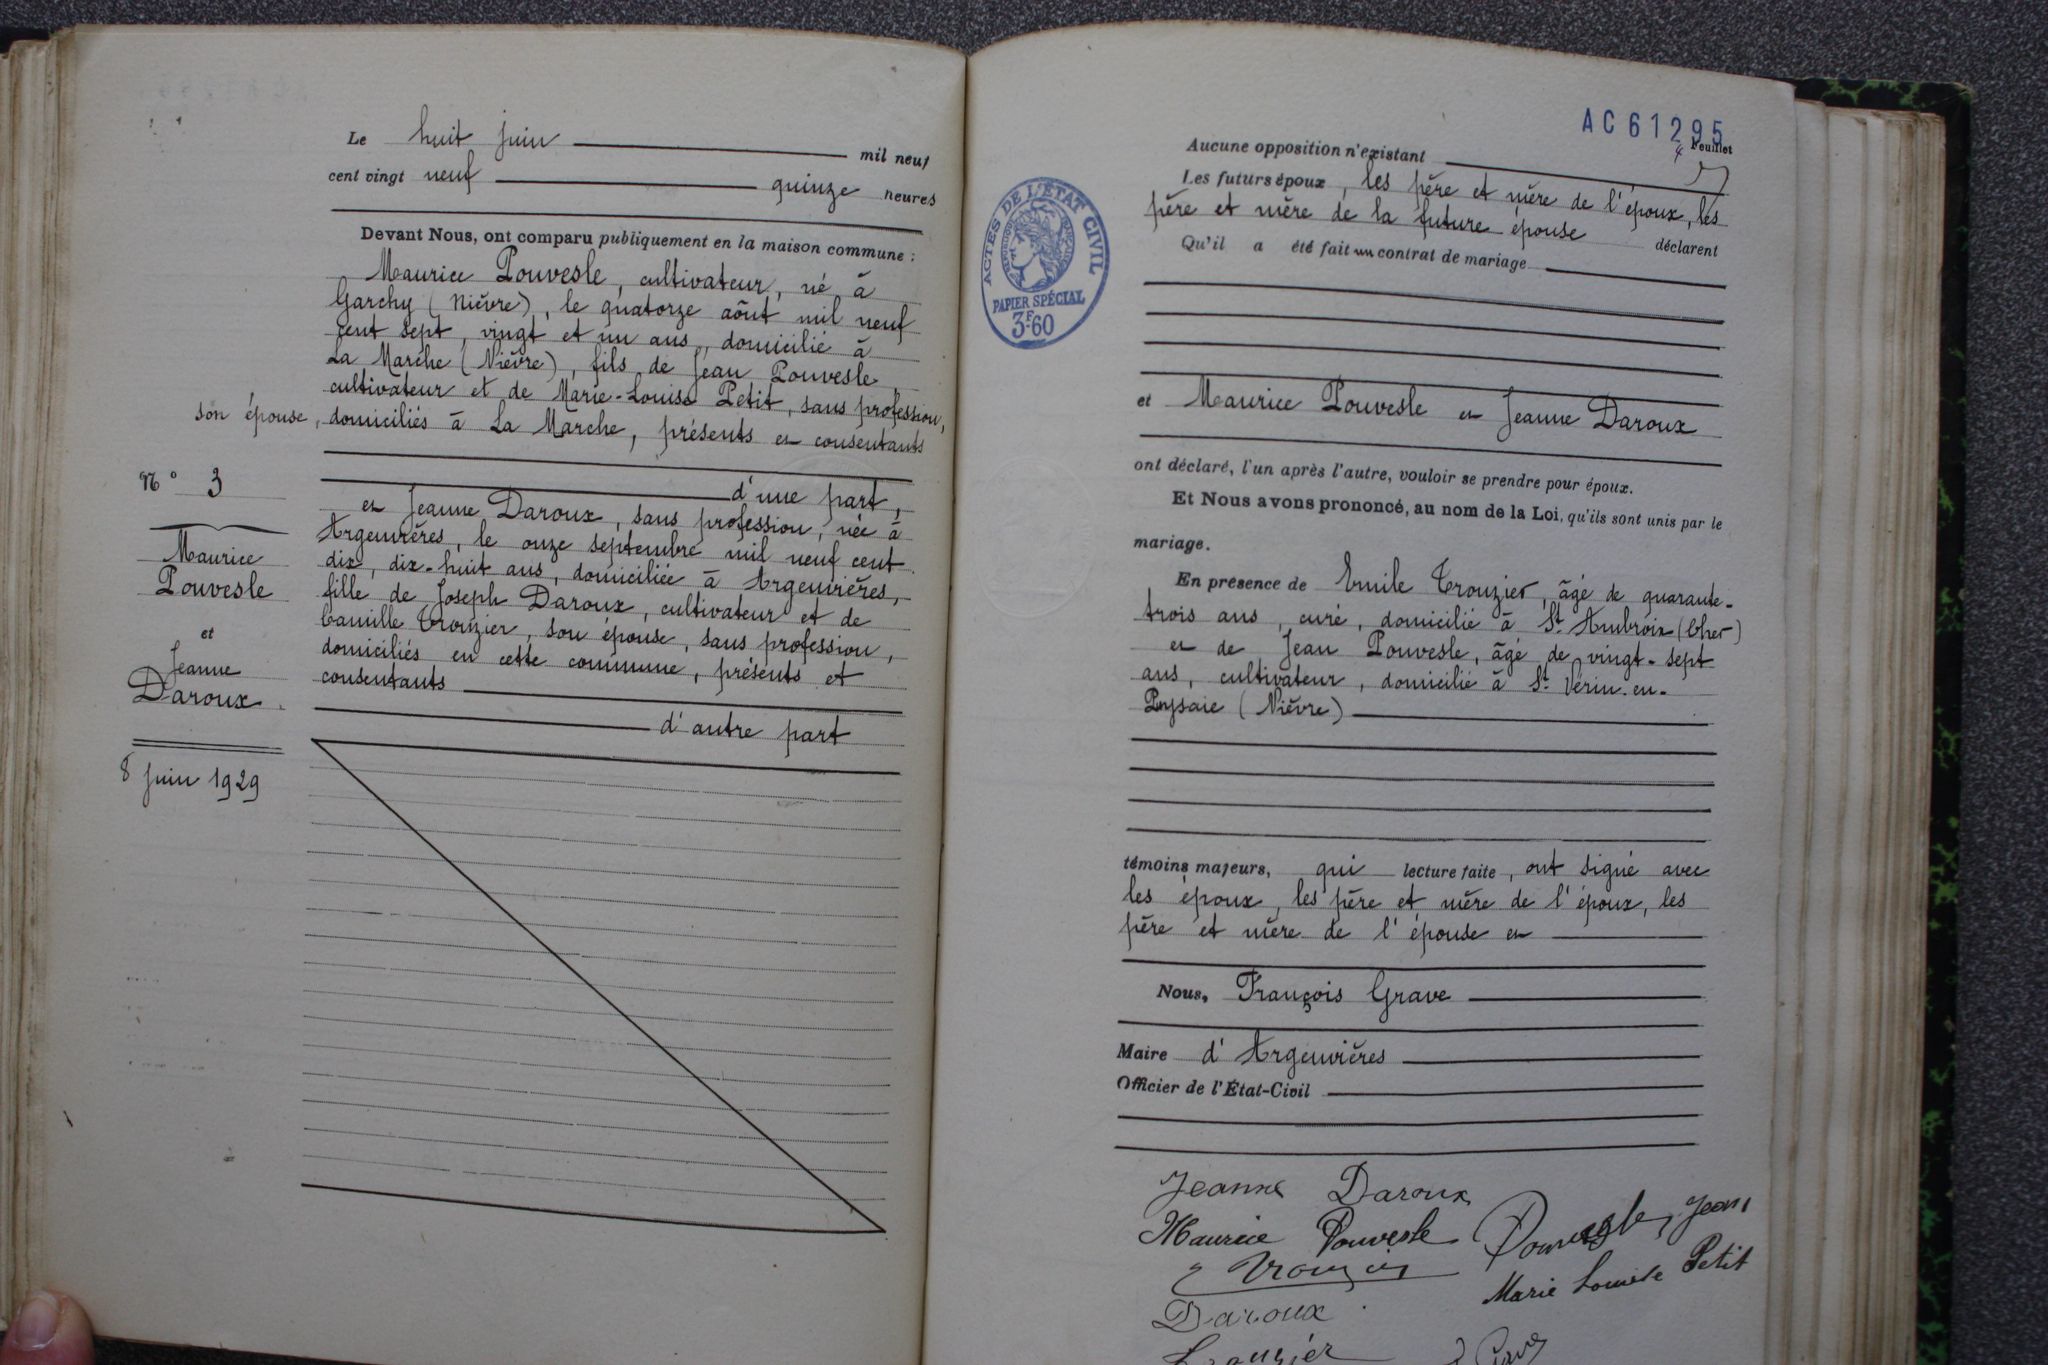 Le huit juin mil neuf
cent vingt neuf quinze heures
Devant Nous, ont comparu publiquement en la maison commune :
Maurice Pouvesle, cultivateur, né à
Garchy (Nièvre), le quatorze août mil neuf
cent sept, vingt et un ans, domicilié à
La Marche (Nièvre), fils de Jean Pouvesle,
cultivateur et de Marie-Louise Petit, sans profession,
son épouse, domiciliés à La Marche, présents et consentants
d'une part,
et Jeanne Daroux, sans profession, née à
Argenvières, le onze septembre mil neuf cent
dix, dix-huit ans, domiciliée à Argenvières,
fille de Joseph Daroux, cultivateur et de
Camille Trouzier, son épouse, sans profession,
domiciliés en cette commune, présents et
consentants
d'autre part
N° 3
Maurice
Pouvesle
et
Jeanne
Daroux
8 juin 1929
AC61295
Feuillet
4
Aucune opposition n'existant
Les futurs époux, les père et mère de l'époux, les
père et mère de la future épouse déclarent
Qu'il a été fait un contrat de mariage
ACTES DE L'ÉTAT CIVIL
RÉPUBLIQUE FRANÇAISE
PAPIER SPÉCIAL
3F60
et Maurice Pouvesle et Jeanne Daroux
ont déclaré, l'un après l'autre, vouloir se prendre pour époux.
Et Nous avons prononcé, au nom de la Loi, qu'ils sont unis par le
mariage.
En présence de Emile Trouzier, âgé de quarante-
trois ans, curé, domicilié à St Ambroix (Cher)
et de Jean Pouvesle, âgé de vingt-sept
ans, cultivateur, domicilié à St Vérin-en-
Puysaie (Nièvre)
témoins majeurs, qui lecture faite, ont signé avec
les époux, les père et mère de l'époux, les
père et mère de l'épouse et
Nous, François Grave
Maire d'Argenvières
Officier de l'État-Civil
Jeanne Daroux
Maurice Pouvesle Pouvesle Jean
E Trouzier Marie Louise Petit
Daroux
Trouzier